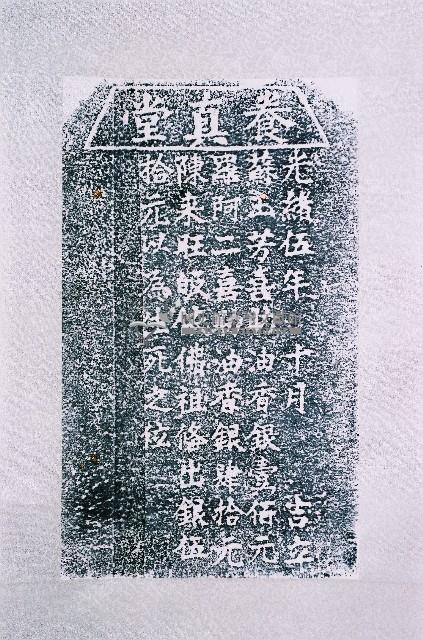 養真堂
光緒伍年 十月 吉
蘇 芳喜助油香銀壹佰元
羅阿二喜助油香銀肆拾元
陳來旺皈依佛祖條出銀伍
拾元以為生死之位